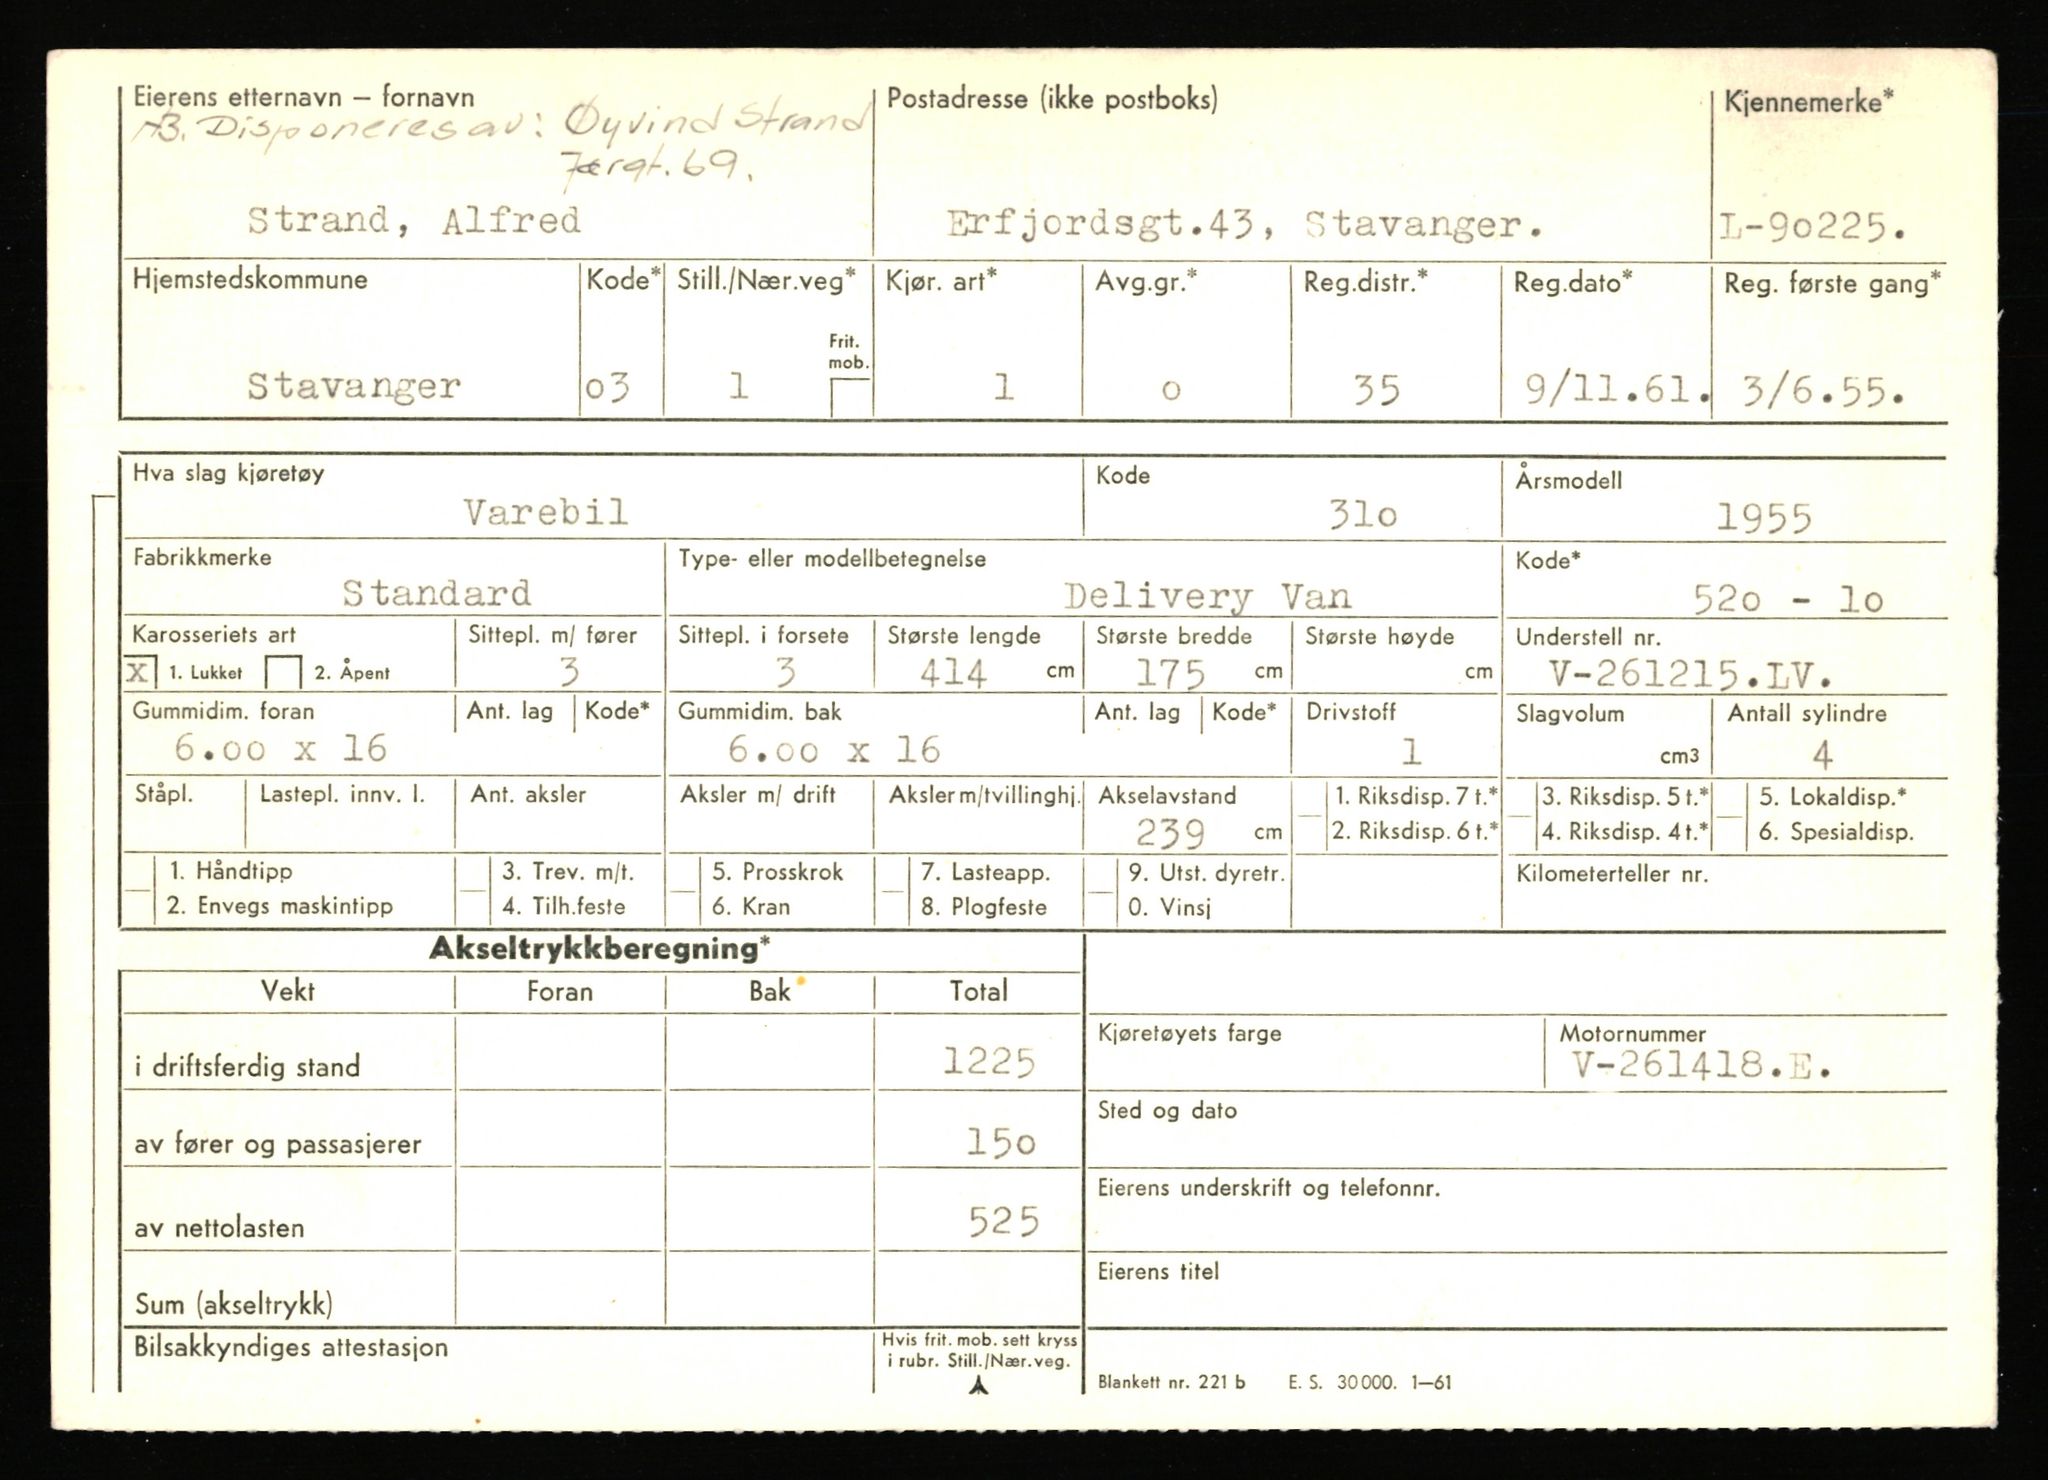 Eierens etternavn – fornavn
Postadresse (ikke postboks)
Kjennemerke*
Disponeres av: Øyvind Strand
Jærgt. 69.
Strand, Alfred
Erfjordsgt.43, Stavanger.
L-90225.
Hjemstedskommune Kode* Still./Nær.veg* Kjør. art* Avg.gr.* Reg.distr.* Reg.dato* Reg. første gang*
Frit. mob.
Stavanger o3 1 1 o 35 9/11.61. 3/6.55.
Hva slag kjøretøy Kode Årsmodell
Varebil 31o 1955
Fabrikkmerke Type- eller modellbetegnelse Kode*
Standard Delivery Van 52o - 1o
Karosseriets art Sittepl. m/ fører Sittepl. i forsete Største lengde Største bredde Største høyde Understell nr.
X 1. Lukket 2. Åpent 3 3 414 cm 175 cm cm V-261215.LV.
Gummidim. foran Ant. lag Kode* Gummidim. bak Ant. lag Kode* Drivstoff Slagvolum Antall sylindre
6.oo x 16 6.oo x 16 1 cm3 4
Ståpl. Lastepl. innv. l. Ant. aksler Aksler m/ drift Aksler m/tvillinghj. Akselavstand 1. Riksdisp. 7 t.* 3. Riksdisp. 5 t.* 5. Lokaldisp.*
239 cm 2. Riksdisp. 6 t.* 4. Riksdisp. 4 t.* 6. Spesialdisp.
1. Håndtipp 3. Trev. m/t. 5. Prosskrok 7. Lasteapp. 9. Utst. dyretr. Kilometerteller nr.
2. Envegs maskintipp 4. Tilh.feste 6. Kran 8. Plogfeste 0. Vinsj
Akseltrykkberegning*
Vekt Foran Bak Total
Kjøretøyets farge Motornummer
i driftsferdig stand 1225 V-261418.E.
Sted og dato
av fører og passasjerer 15o
Eierens underskrift og telefonnr.
av nettolasten 525
Eierens titel
Sum (akseltrykk)
Bilsakkyndiges attestasjon
Hvis frit. mob. sett kryss
i rubr. Still./Nær.veg.
Blankett nr. 221 b E. S. 30 000. 1–61